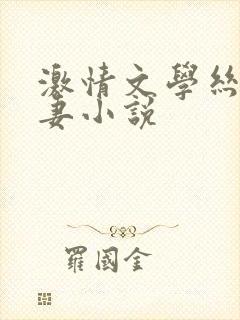 激情文學絲
妻小說
羅國金